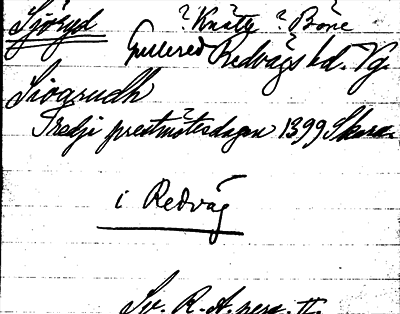 Sjöryd ? Knäty ? Böne
Gullered Redvägs hd. Vg.
Siogrudh
Tredje prestmötesdagen 1399 Skara
i Redväg
Sv. R. A. perg.